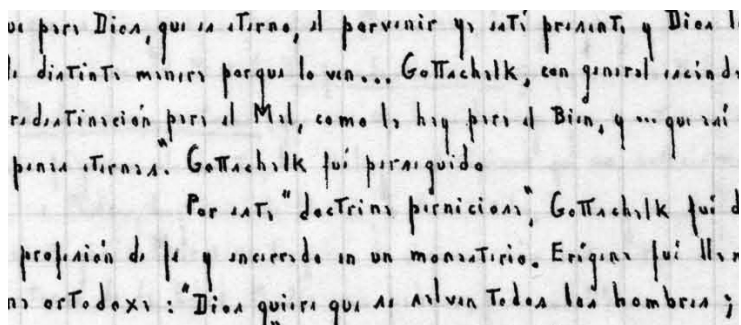 ue para Dios, que es eterno, el porvenir ya está presente y Dios l
de distinta manera porque lo ven... Gottschalk, con general escánda
redestinación para el Mal, como la hay para el Bien, y ... que así
penas eternas". Gottschalk fué perseguido
Por esta "doctrina perniciosa", Gottschalk fué d
profesión de fe y encerrado en un monasterio. Erígena fué llam
na ortodoxa : "Dios quiere que se salven todos los hombres ;